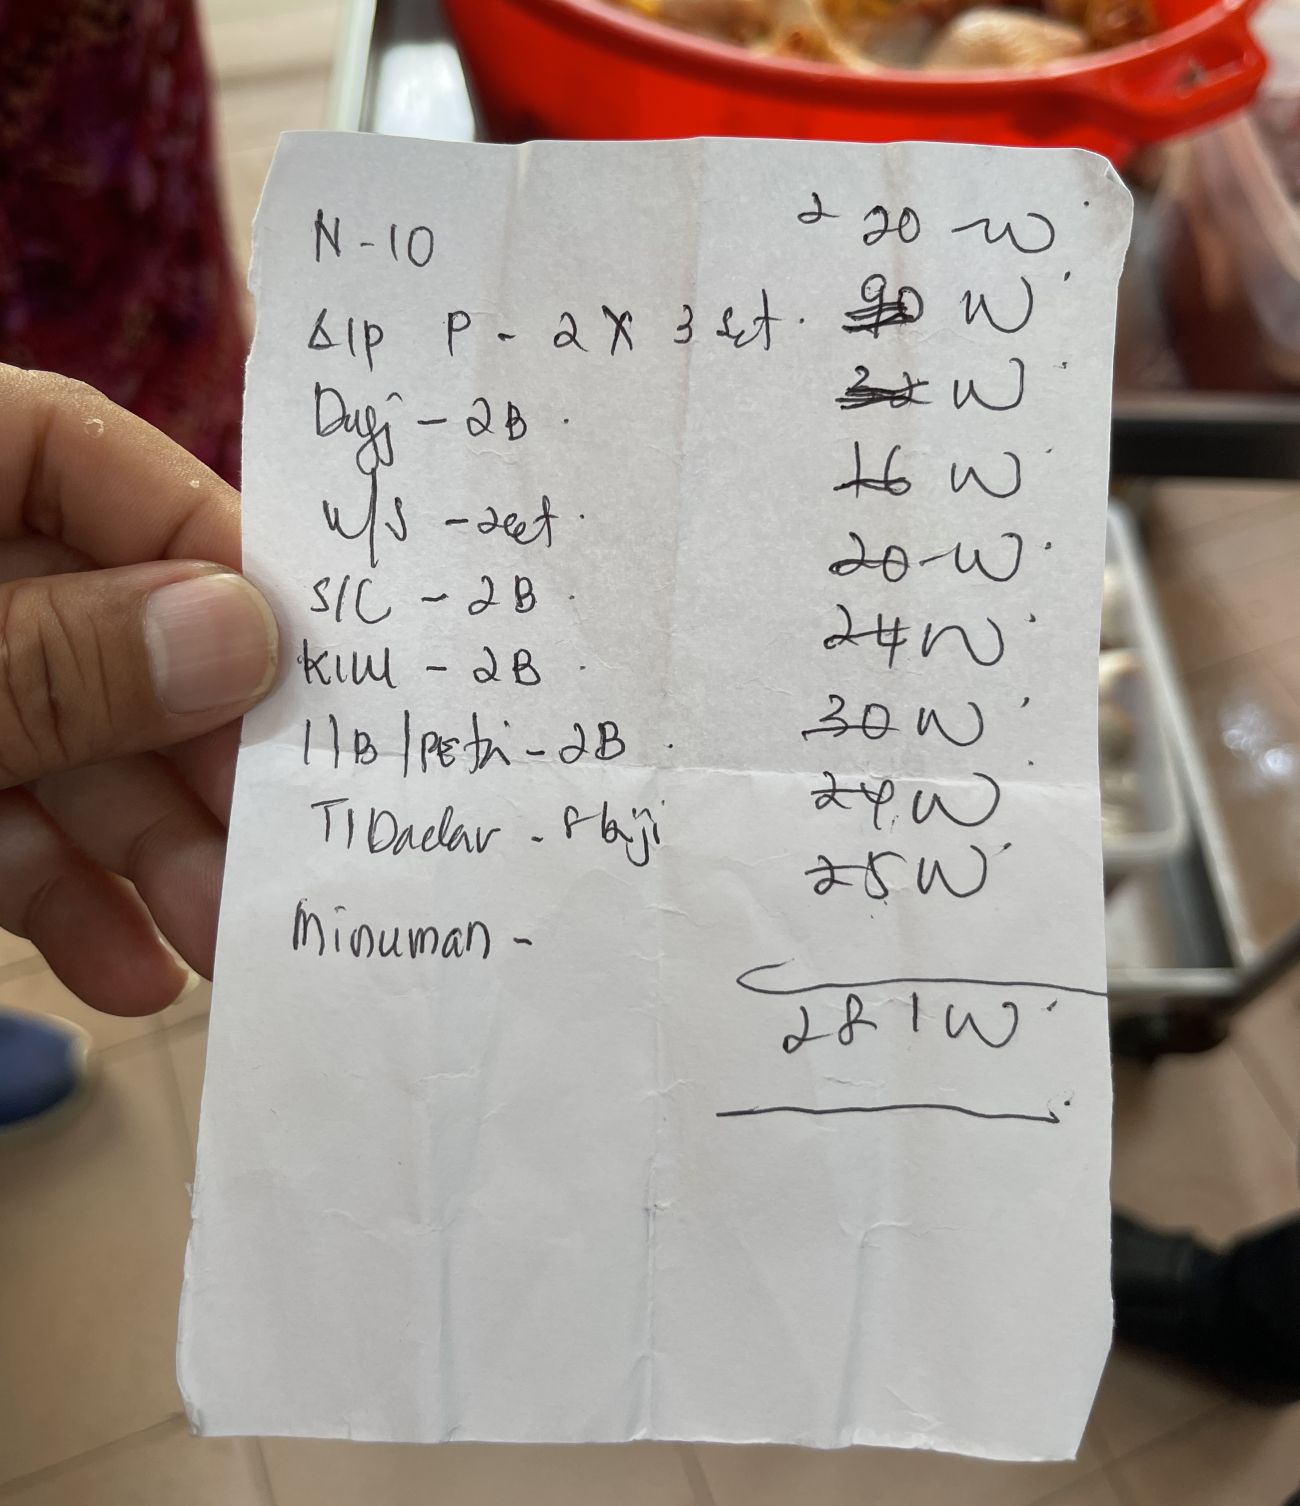 N - 10 2 20 w
Slp P - 2 X 3 set. 90 w
Dugj - 2B. 32 w
W/S - 2set. 16 w
S/C - 2B. 20 w
KIW - 2B. 24 w
11B / Petai - 2B. 30 w
T/Dadar - 8 biji 24 w
Minuman - 25 w
281 w